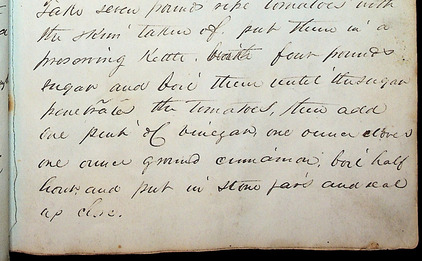 Take seven pounds ripe tomatoes with
the skins taken of, put them in a
preserving Kettle. four pounds
sugar and boil them until the sugar
penetrates the tomatoes, then add
one pint of vinegar, one ounce cloves
one ounce ground cinnamon, boil half
hour, and put in stone jars and seal
up close.